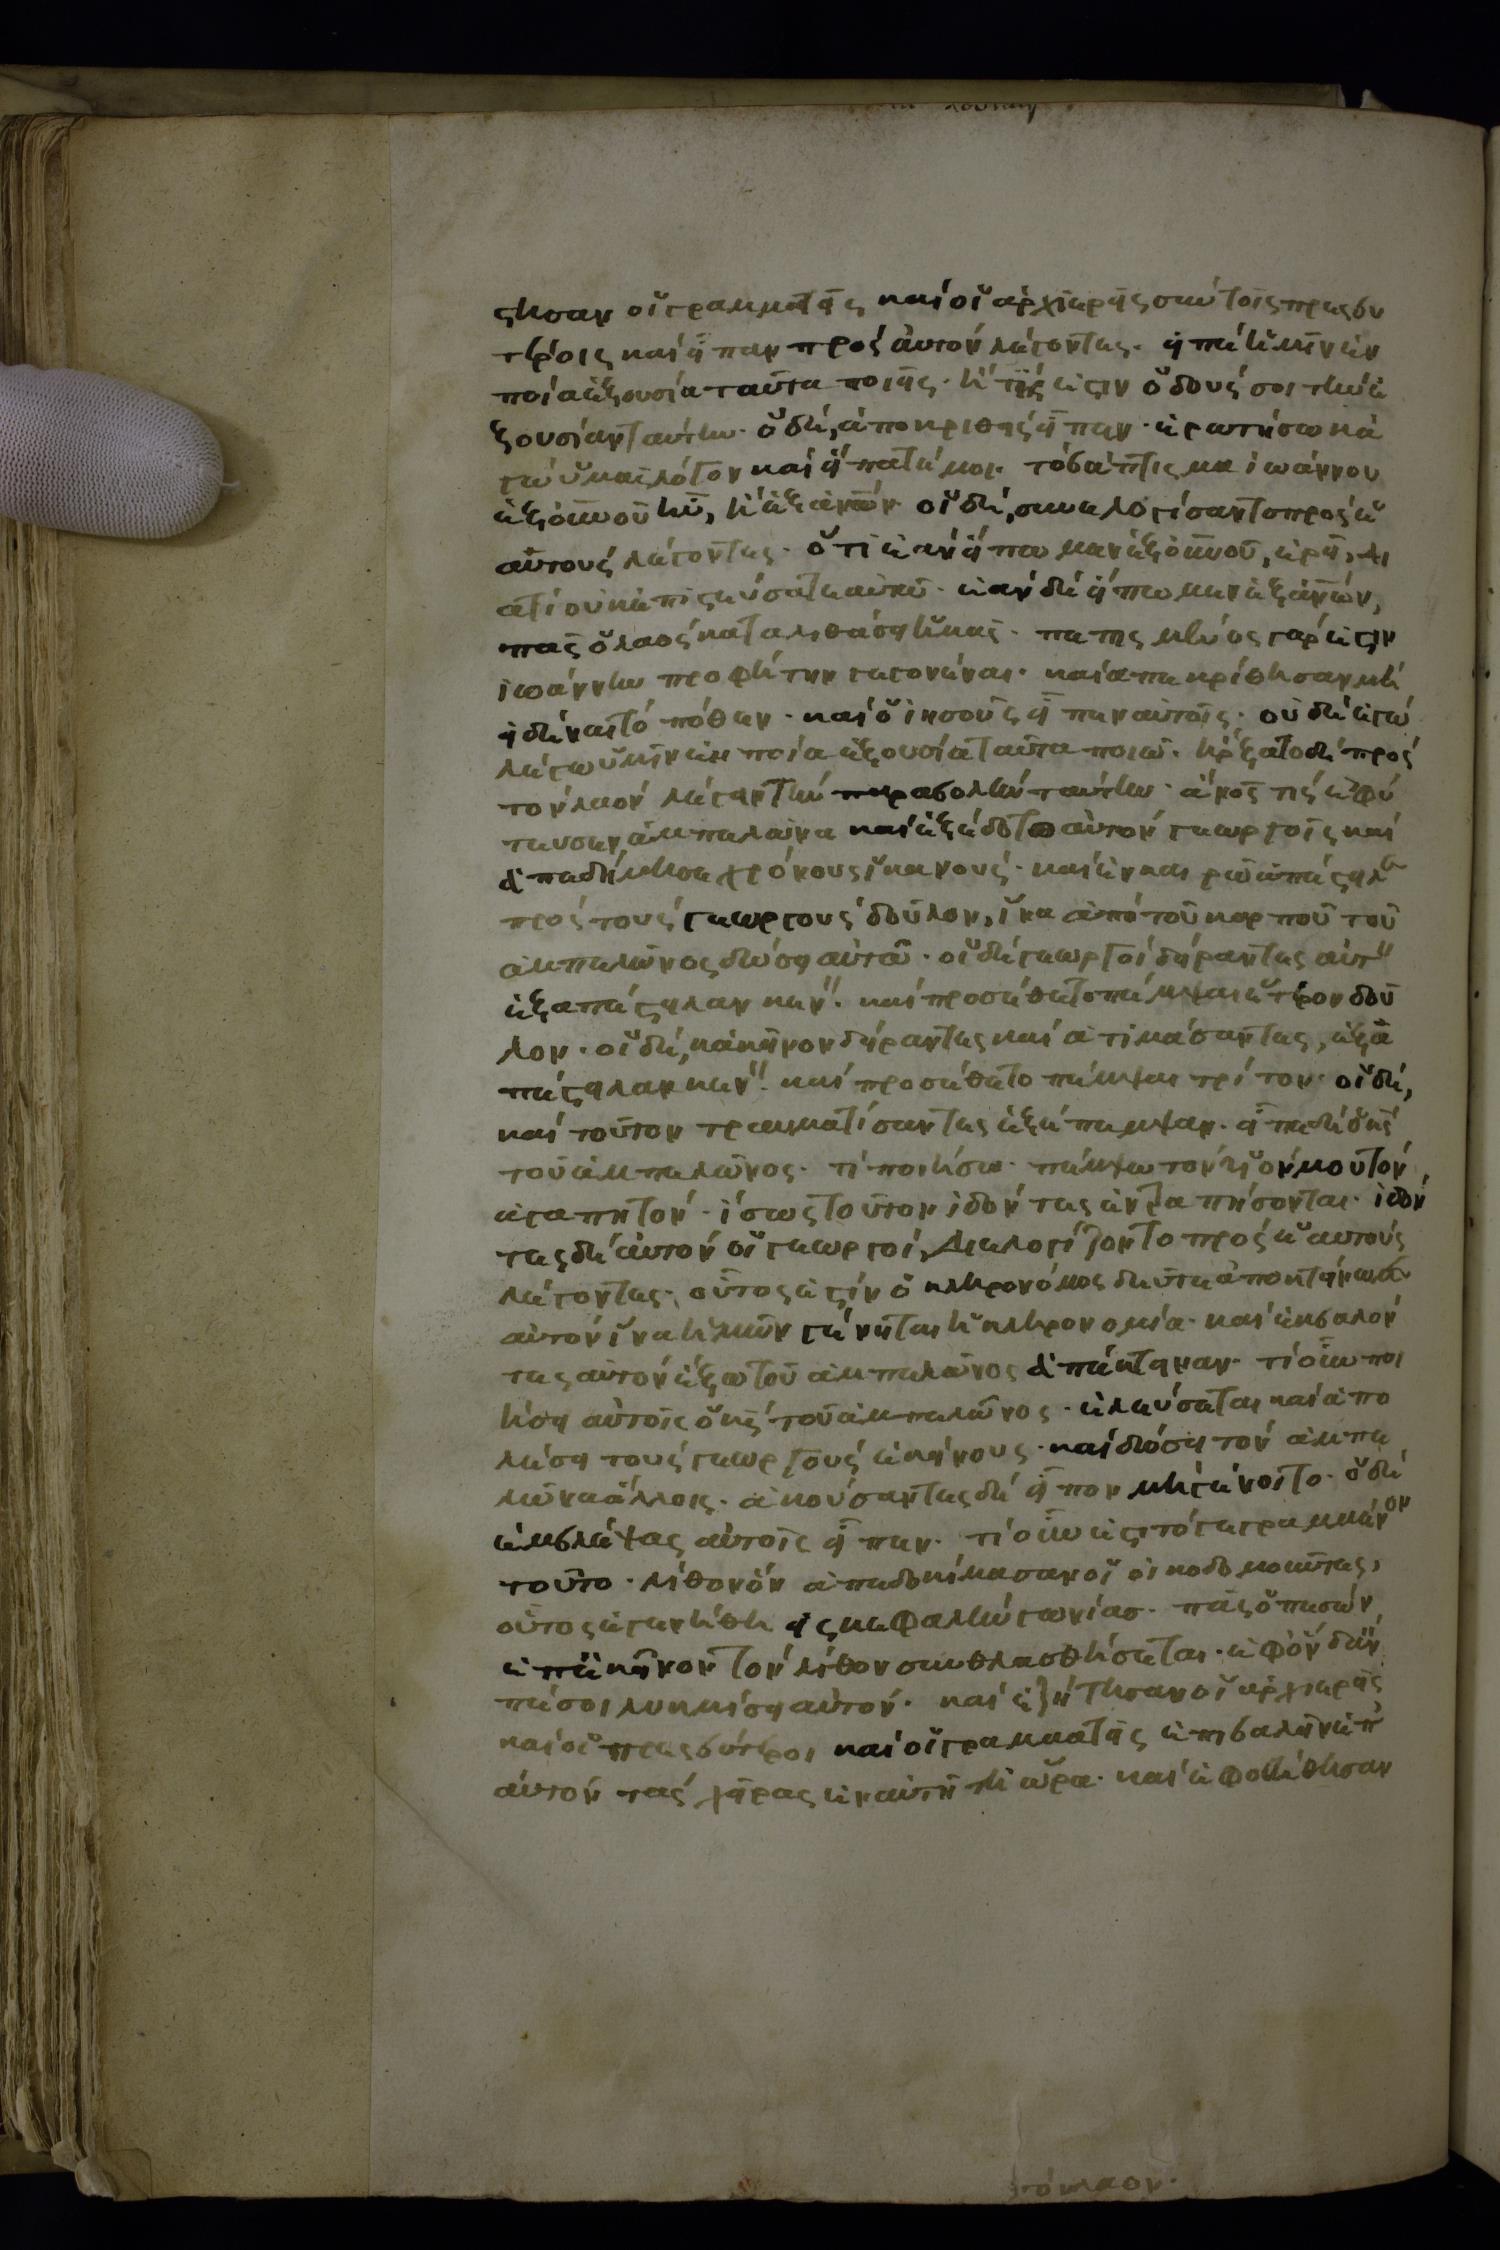 λουκαν
στησαν οἱ γραμματεῖς καὶ οἱ ἀρχιερεῖς σὺν τοῖς πρεσβυ
τέροις καὶ εἶπον πρὸς αὐτὸν λέγοντες· εἰπὲ ἡμῖν ἐν
ποία ἐξουσία ταῦτα ποιεῖς· ἢ τίς ἐστιν ὁ δούς σοι τὴν ἐ
ξουσίαν ταύτην· ὁ δὲ, ἀποκριθεὶς εἶπεν· ἐρωτήσω κἀ
γὼ ὑμᾶς λόγον καὶ εἴπατέ μοι· τὸ βάπτισμα ἰωάννου
ἐξ οὐνοῦ ἦν, ἢ ἐξ ἀνων· οἱ δὲ, συνελογίσαντο πρὸς ἑ
αυτοὺς λέγοντες· ὅτι ἐὰν εἴπωμεν ἐξ οὐνοῦ, ἐρεῖ, δι
ατί οὐκ ἐπιστεύσατε αὐτῶ· ἐὰν δὲ εἴπωμεν ἐξ ἀνων,
πᾶς ὁ λαὸς καταλιθάσει ἡμᾶς· πεπεισμένος γάρ ἐστιν
ἰωάννην προφήτην γεγονέναι· καὶ ἀπεκρίθησαν μὴ
εἰδέναι τὸ πόθεν· καὶ ὁ ἰησοῦς εἶπεν αὐτοῖς· οὐδὲ ἐγὼ
λέγω ὑμῖν ἐν ποία ἐξουσία ταῦτα ποιῶ· ἤρξατο δὲ πρὸς
τὸν λαὸν λέγειν τὴν παραβολὴν ταύτην· ἄνος τις ἐφύ
τευσεν ἀμπελῶνα καὶ ἐξέδοτο αὐτὸν γεωργοῖς καὶ
ἀπεδήμησε χρόνους ἱκανούς· καὶ ἐν καιρῶ ἀπέστειλε
πρὸς τοὺς γεωργοὺς δοῦλον, ἵνα ἀπὸ τοῦ καρποῦ τοῦ
ἀμπελῶνος δώση αὐτῶ· οἱ δὲ γεωργοὶ δείραντες αὐτὸν
ἐξαπέστειλαν κενόν· καὶ προσέθετο πέμψαι ἕτερον δοῦ
λον· οἱ δὲ, κἀκεῖνον δείραντες καὶ ἀτιμάσαντες, ἐξα
πέστειλαν κενόν· καὶ προσέθετο πέμψαι τρίτον· οἱ δὲ,
καὶ τοῦτον τραυματίσαντες ἐξέπεμψαν· εἶπε δὲ ὁ κς
τοῦ ἀμπελῶνος· τί ποιήσω· πέμψω τὸν υἱόν μου τὸν
ἀγαπητόν· ἴσως τοῦτον ἰδόντες ἐντραπήσονται· ἰδόν
τες δὲ αὐτὸν οἱ γεωργοὶ, διελογίζοντο πρὸς ἑαυτοὺς
λέγοντες· οὗτός ἐστιν ὁ κληρονόμος δεῦτε ἀποκτείνωμεν
αὐτὸν ἵνα ἡμῶν γένηται ἡ κληρονομία· καὶ ἐκβαλόν
τες αὐτὸν ἔξω τοῦ ἀμπελῶνος ἀπέκτειναν· τί οὖν ποι
ήσει αὐτοῖς ὁ κς τοῦ ἀμπελῶνος· ἐλεύσεται καὶ ἀπο
λέσει τοὺς γεωργοὺς ἐκείνους· καὶ δώσει τὸν ἀμπε
λῶνα ἄλλοις· ἀκούσαντες δὲ εἶπον μὴ γένοιτο· ὁ δὲ
ἐμβλέψας αὐτοῖς εἶπεν· τί οὖν ἐστι τὸ γεγραμμένον
τοῦτο· λίθον ὃν ἀπεδοκίμασαν οἱ οἰκοδομοῦντες,
οὗτος ἐγενήθη εἰς κεφαλὴν γωνίας· πᾶς ὁ πεσὼν
ἐπ' ἐκεῖνον τὸν λίθον συνθλασθήσεται· ἐφ' ὃν δ' ἂν
πέσοι λικμήσει αὐτόν· καὶ ἐζήτησαν οἱ ἀρχιερεῖς
καὶ οἱ πρεσβύτεροι καὶ οἱ γραμματεῖς ἐπιβαλεῖν ἐπ'
αὐτὸν τὰς χεῖρας ἐν αὐτῆ τῆ ὥρα· καὶ ἐφοβήθησαν
τὸν λαον·